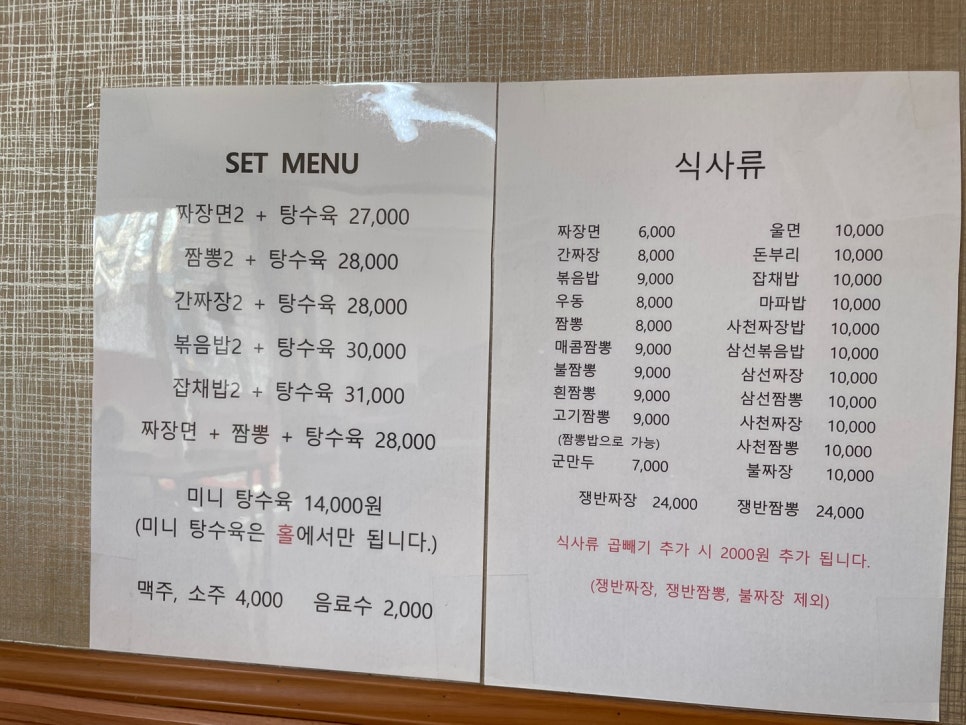 SET MENU
짜장면2 + 탕수육 27,000
짬뽕2 + 탕수육 28,000
간짜장2 + 탕수육 28,000
볶음밥2 + 탕수육 30,000
잡채밥2 + 탕수육 31,000
짜장면 + 짬뽕 + 탕수육 28,000
미니 탕수육 14,000원
(미니 탕수육은 홀에서만 됩니다.)
맥주, 소주 4,000 음료수 2,000
식사류
짜장면 6,000 울면 10,000
간짜장 8,000 돈부리 10,000
볶음밥 9,000 잡채밥 10,000
우동 8,000 마파밥 10,000
짬뽕 8,000 사천짜장밥 10,000
매콤짬뽕 9,000 삼선볶음밥 10,000
불짬뽕 9,000 삼선짜장 10,000
흰짬뽕 9,000 삼선짬뽕 10,000
고기짬뽕 9,000 사천짜장 10,000
(짬뽕밥으로 가능) 사천짬뽕 10,000
군만두 7,000 불짜장 10,000
쟁반짜장 24,000 쟁반짬뽕 24,000
식사류 곱빼기 추가 시 2000원 추가 됩니다.
(쟁반짜장, 쟁반짬뽕, 불짜장 제외)